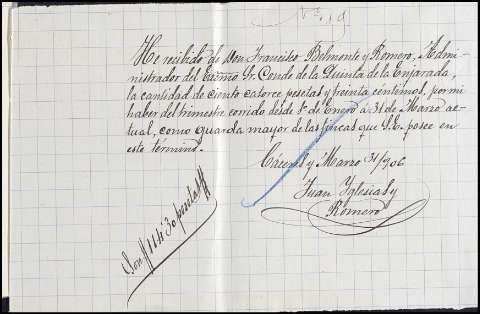 Nº 19
He recibido de Don Francisco Belmonte y Romero, Admi-
nistrador del Excmo Sr. Conde de la Quinta de la Enjarada,
la cantidad de ciento catorce pesetas y treinta centimos, por mi
haber del trimestre corrido desde 1º de Enero á 31 de Marzo ac-
tual, como guarda mayor de las fincas que S.E. posee en
este término.
Caceres y Marzo 31/906
Juan Yglesias y
Romero
Son 114'30 pesetas